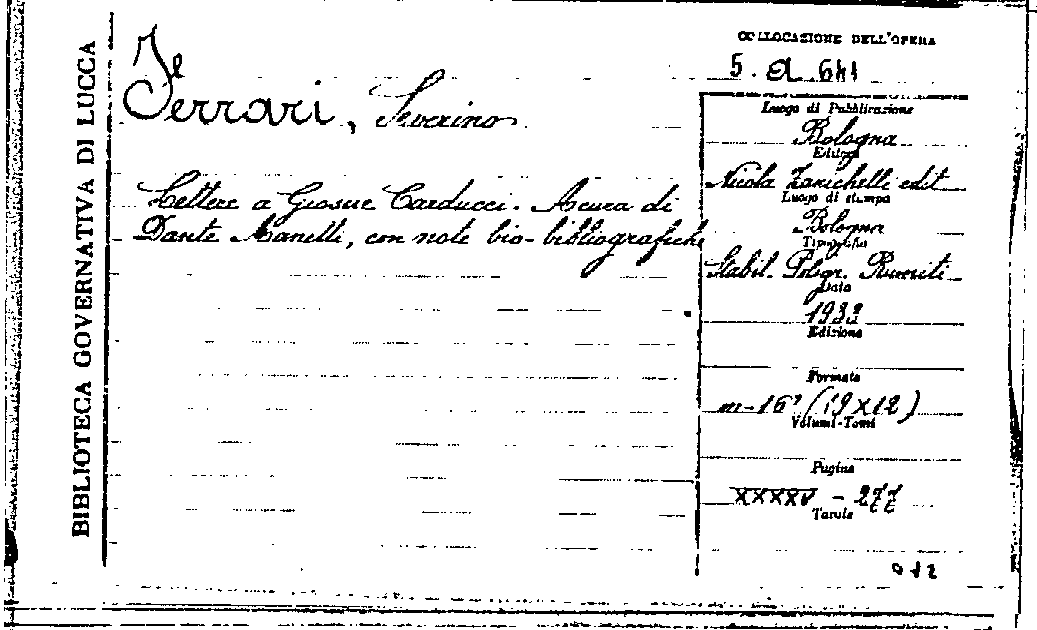 BIBLIOTECA GOVERNATIVA DI LUCCA
COLLOCAZIONE DELL'OPERA
5. a. 641
Fe
Ferrari, Severino
Lettere a Giosue Carducci. A cura di
Dante Manetti, con note bio-bibliografiche
Luogo di Pubblicazione
Bologna
Editore
Nicola Zanichelli edit
Luogo di stampa
Bologna
Tipografia
Stabil. Poligr. Riuniti
Data
1933
Edizione
Formato
in-16° (19x12)
Volumi-Tomi
Pagine
XXXXV - 277
Tavole